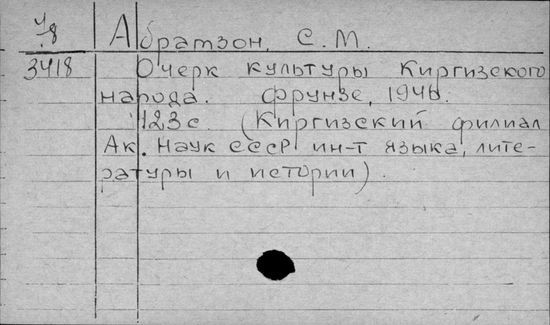 4/8 Абратзон, С.М.
3418 Очерк культуры Киргизского
народа. Фрунзе, 1946.
123 с. (Киргизский филиал
Ак. Наук СССР ин-т языка, лите-
ратуры и истории).